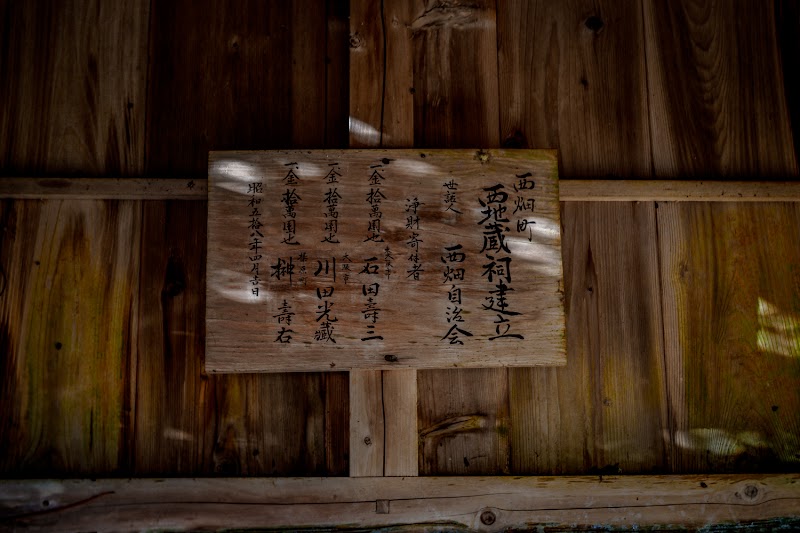 西畑町
西地蔵祠建立
世話人 西畑自治会
浄財寄進者
一金拾萬円也 石田壽三
一金拾萬円也 川田光藏
一金拾萬円也 榊 壽右
昭和五拾八年四月吉日